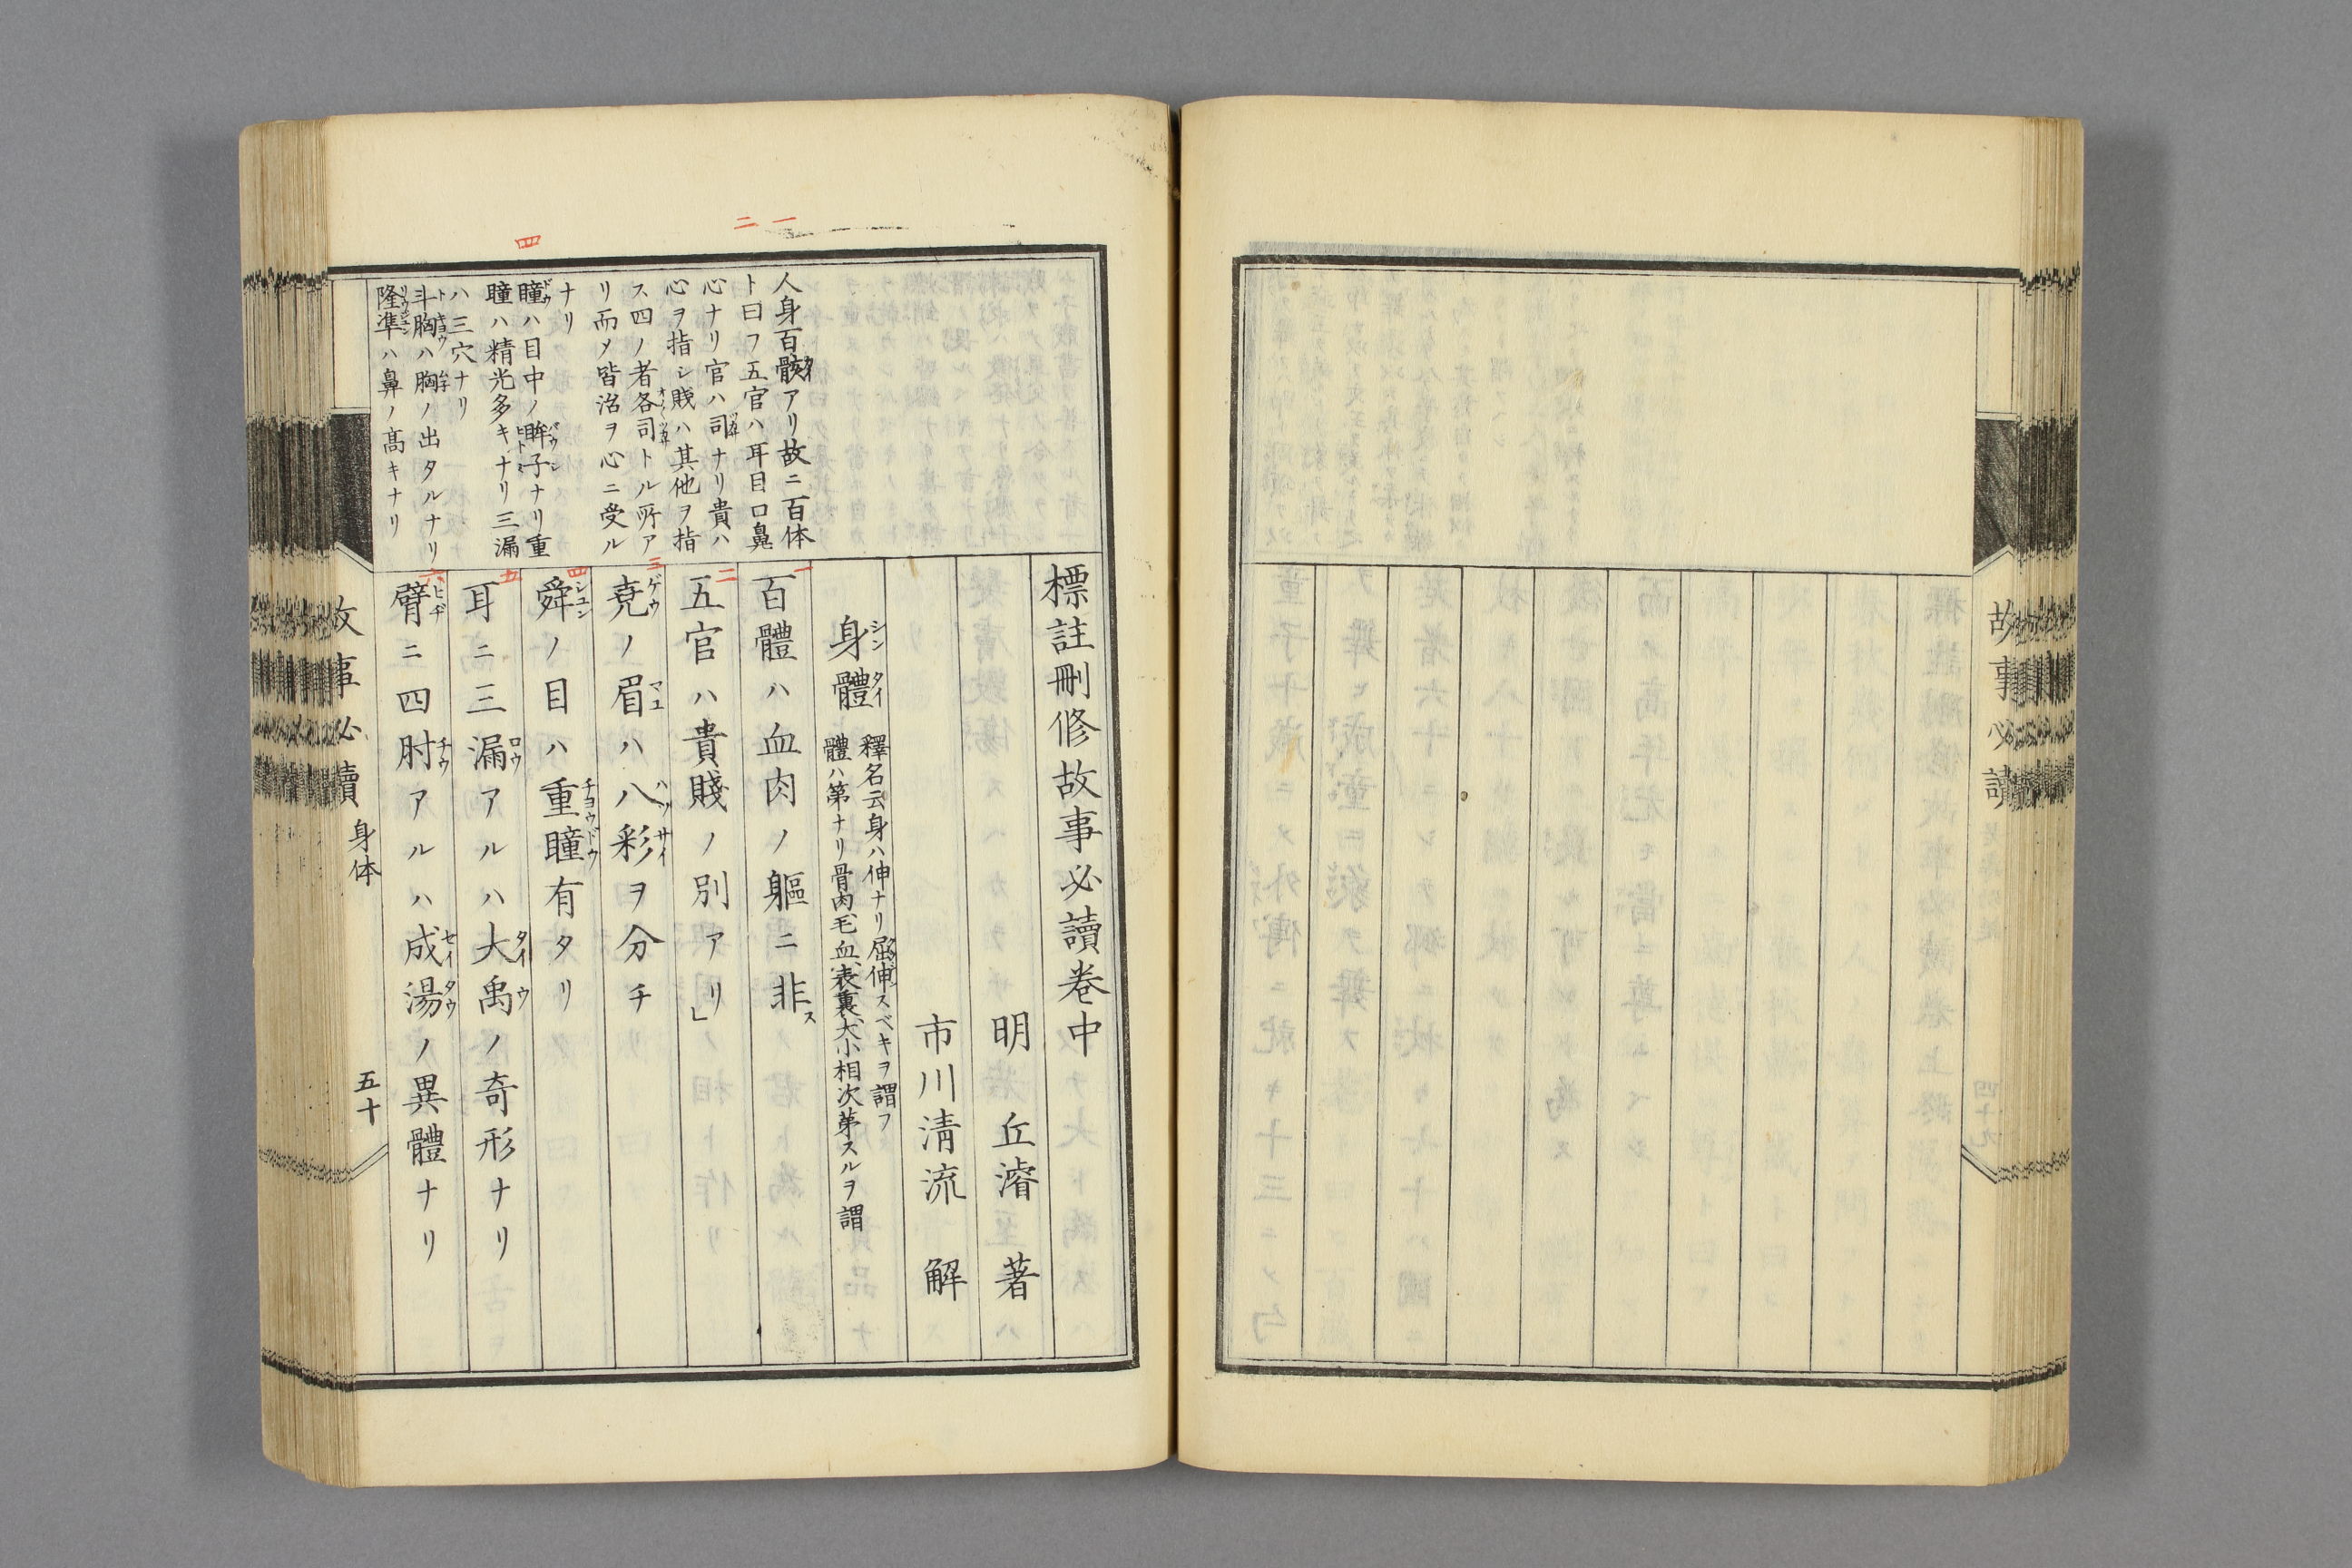 故事必讀
標註刪修故事必讀卷中
明 丘濬 著
市川清流 解
身體 釋名云身ハ伸ナリ屈伸スベキヲ謂フ
體ハ第ナリ骨肉毛血、表裏、大小相次第スルヲ謂
百體ハ血肉ノ軀ニ非ス
五官ハ貴賤ノ別アリ」
堯ノ眉ハ八彩ヲ分チ
舜ノ目ハ重瞳有タリ
耳ニ三漏アルハ大禹ノ奇形ナリ
臂ニ四肘アルハ成湯ノ異體ナリ
人身百骸アリ故ニ百体
ト曰フ五官ハ耳目口鼻
心ナリ官ハ司ナリ貴ハ
心ヲ指シ賎ハ其他ヲ指
ス四ノ者各司トル所ア
リ而メ皆治ヲ心ニ受ル
ナリ
瞳ハ目中ノ眸子ナリ重
瞳ハ精光多キナリ三漏
ハ三穴ナリ
斗胸ハ胸ノ出タルナリ
隆準ハ鼻ノ高キナリ
一
二
四
一
二
三
四
五
六
故事必讀 身体 五十